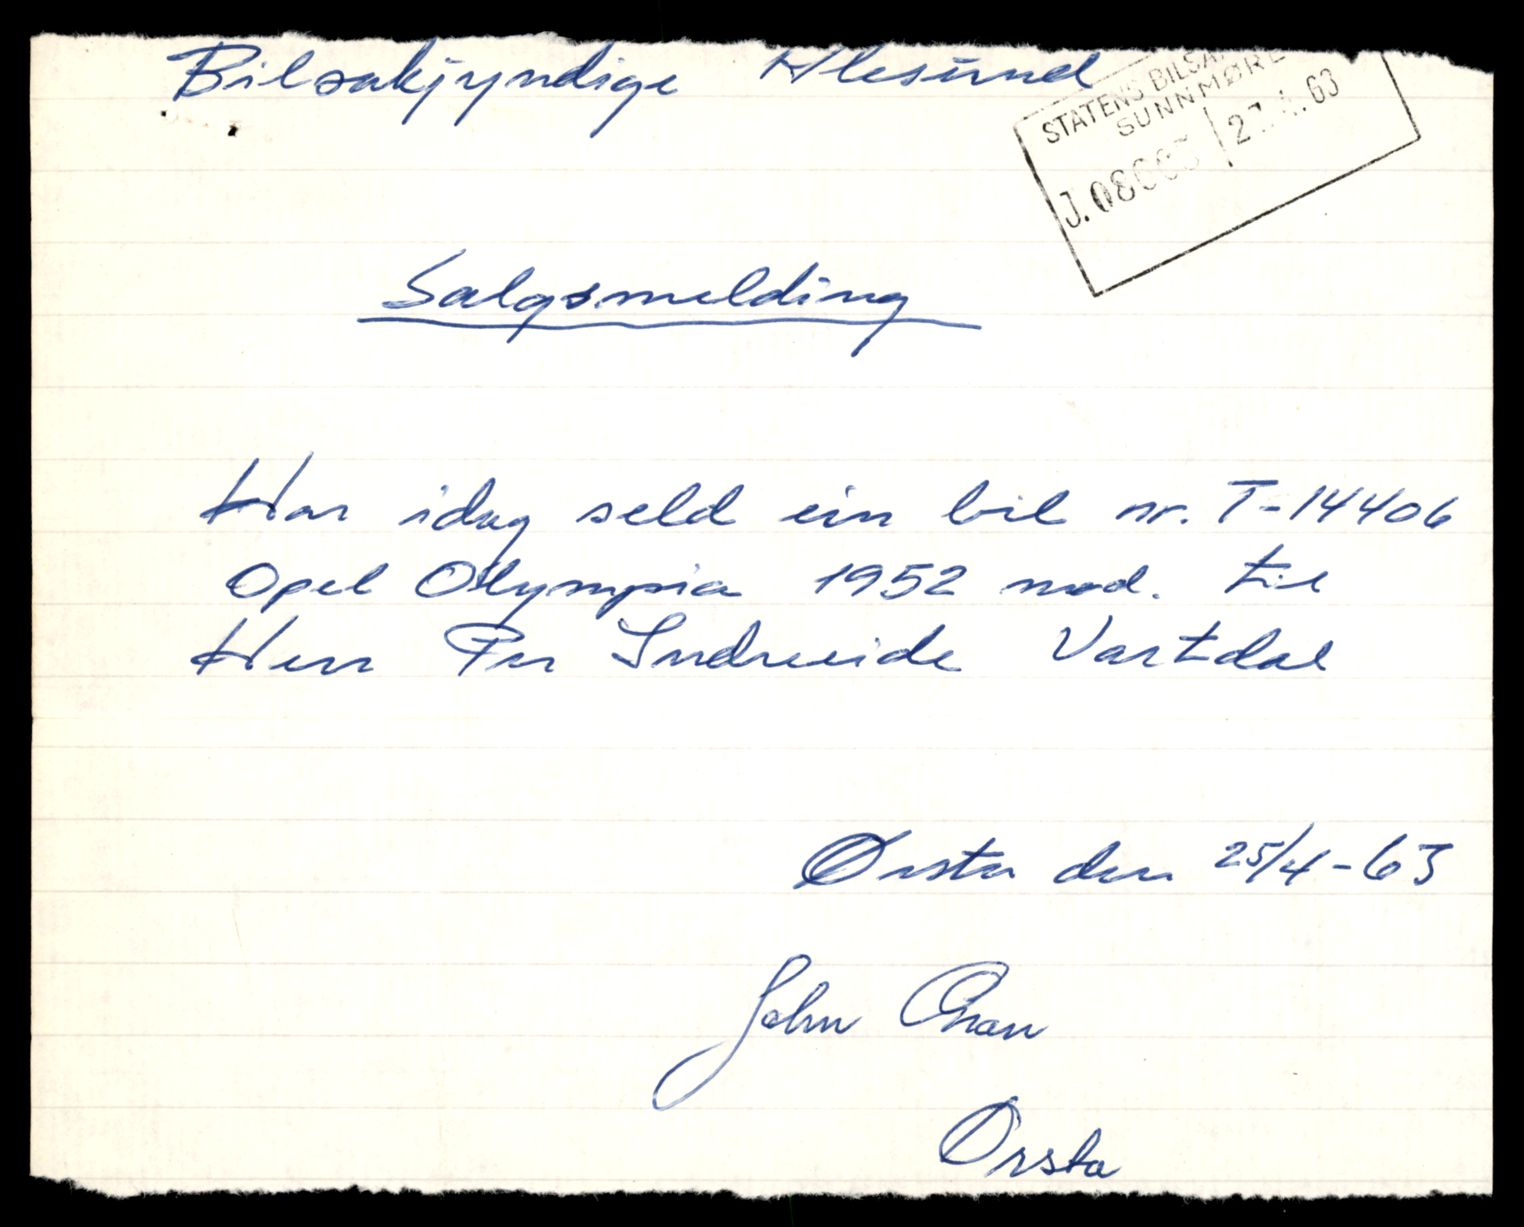 Bilsakjyndige Ålesund
STATENS BILSA
SUNNMØRE
27.4.63
Salgsmelding
Har idag seld ein bil nr. T-14406
Opel Olympia 1952 mod. til
Herr Per Indreeide Vartdal
Ørsta den 25/4-63
John
Ørsta